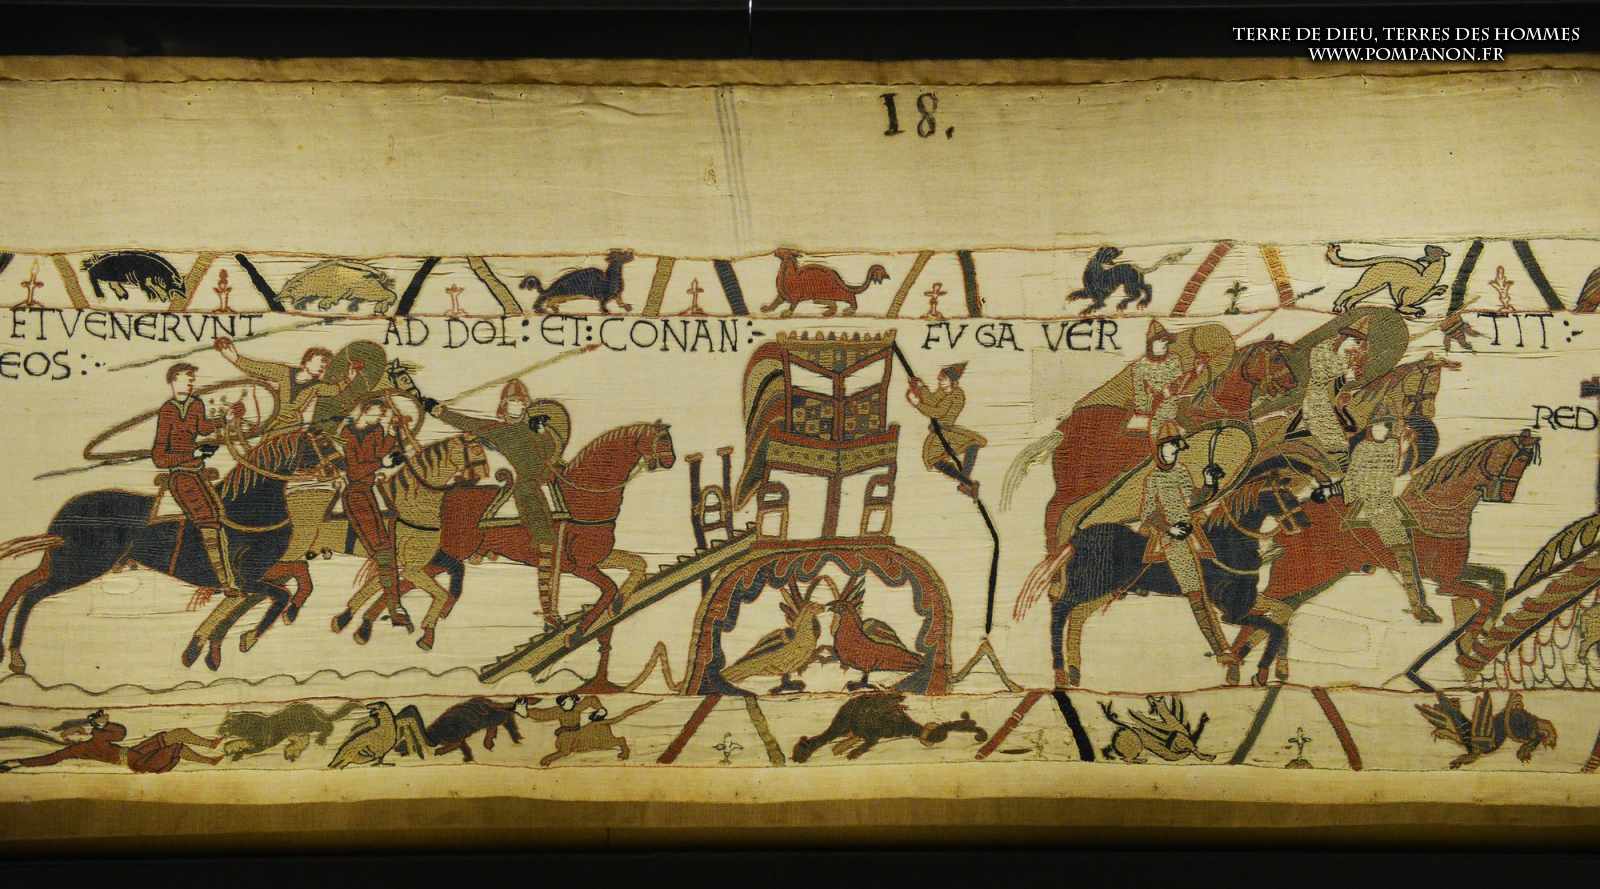 TERRE DE DIEU, TERRES DES HOMMES
WWW.POMPANON.FR
18.
ET VENERVNT AD DOL : ET : CONAN :- FVGA VER TIT :-
EOS :-
RED